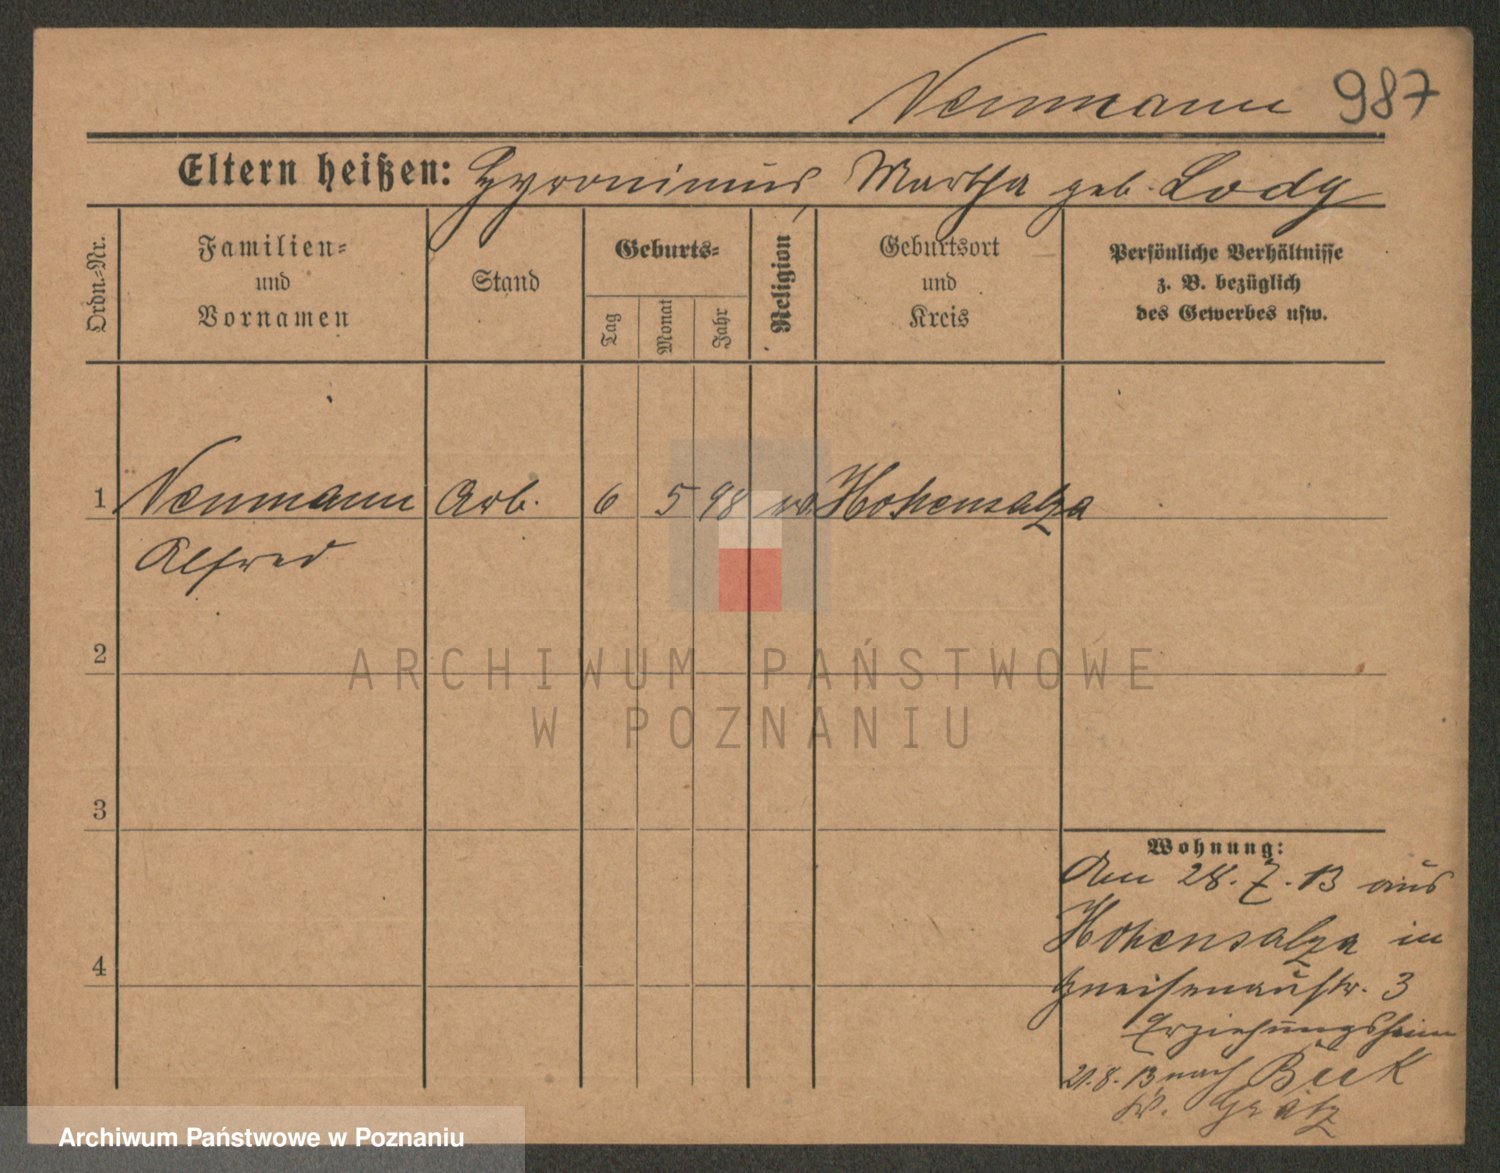 Neumann 987
Eltern heißen: Hyronimus, Martha geb. Lody
Ordn.-Nr.
Familien-
und
Vornamen
Stand
Geburts-
Tag
Monat
Jahr
Religion
Geburtsort
und
Kreis
Persönliche Verhältnisse
z. B. bezüglich
des Gewerbes usw.
1 Neumann Arb. 6 5 98 Hohensalza
Alfred
2
3
4
Wohnung:
Am 28.7.13 aus
Hohensalza in
Gneisenaustr. 3
Erziehungsheim
21.8.13 nach Buk
Kr. Grätz
ARCHIWUM PAŃSTWOWE
W POZNANIU
Archiwum Państwowe w Poznaniu